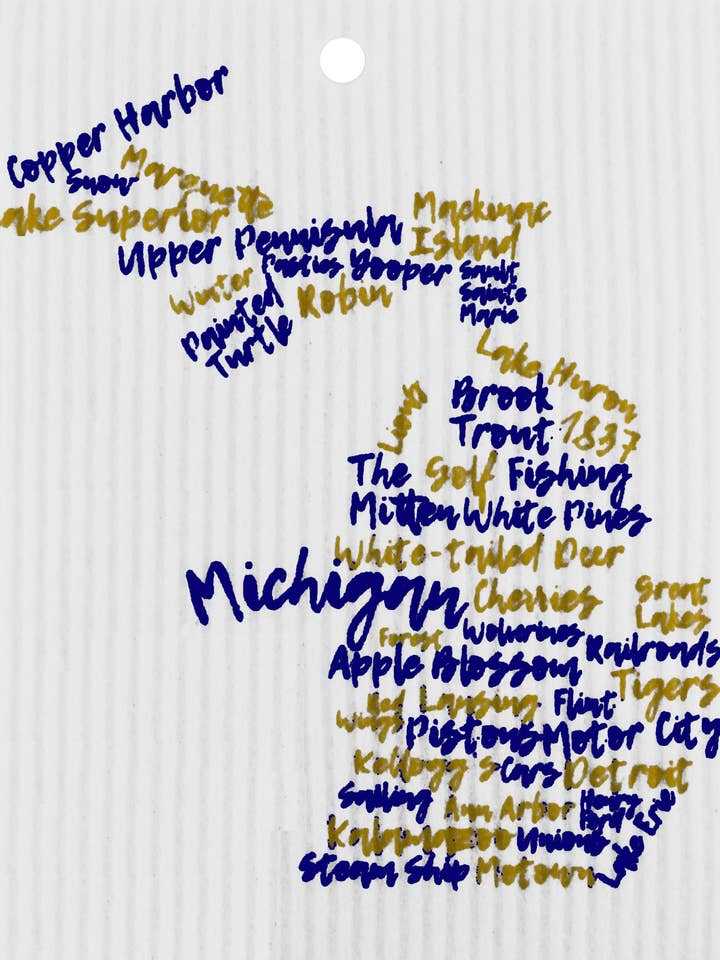 Copper Harbor
Snow
Marquette
ake Superior
Upper Pennisula
Mackinac
Island
Pasties Yooper
Sault
Sainte
Marie
Winter
Painted
Turtle
Robin
Lake Huron
Lions
Brook
Trout 1837
The Golf Fishing
Mitten White Pines
White-tailed Deer
Michigan
Cherries
Great
Lakes
Forest
Wolverines
Railroads
Apple Blossom
Tigers
Red
Wings
Lansing
Flint
Pistons Motor City
Kellogg's Cars Detroit
Sailing
Ann Arbor
Henry
Ford
Lake Erie
Kalamazoo Unions
Steam Ship Motown